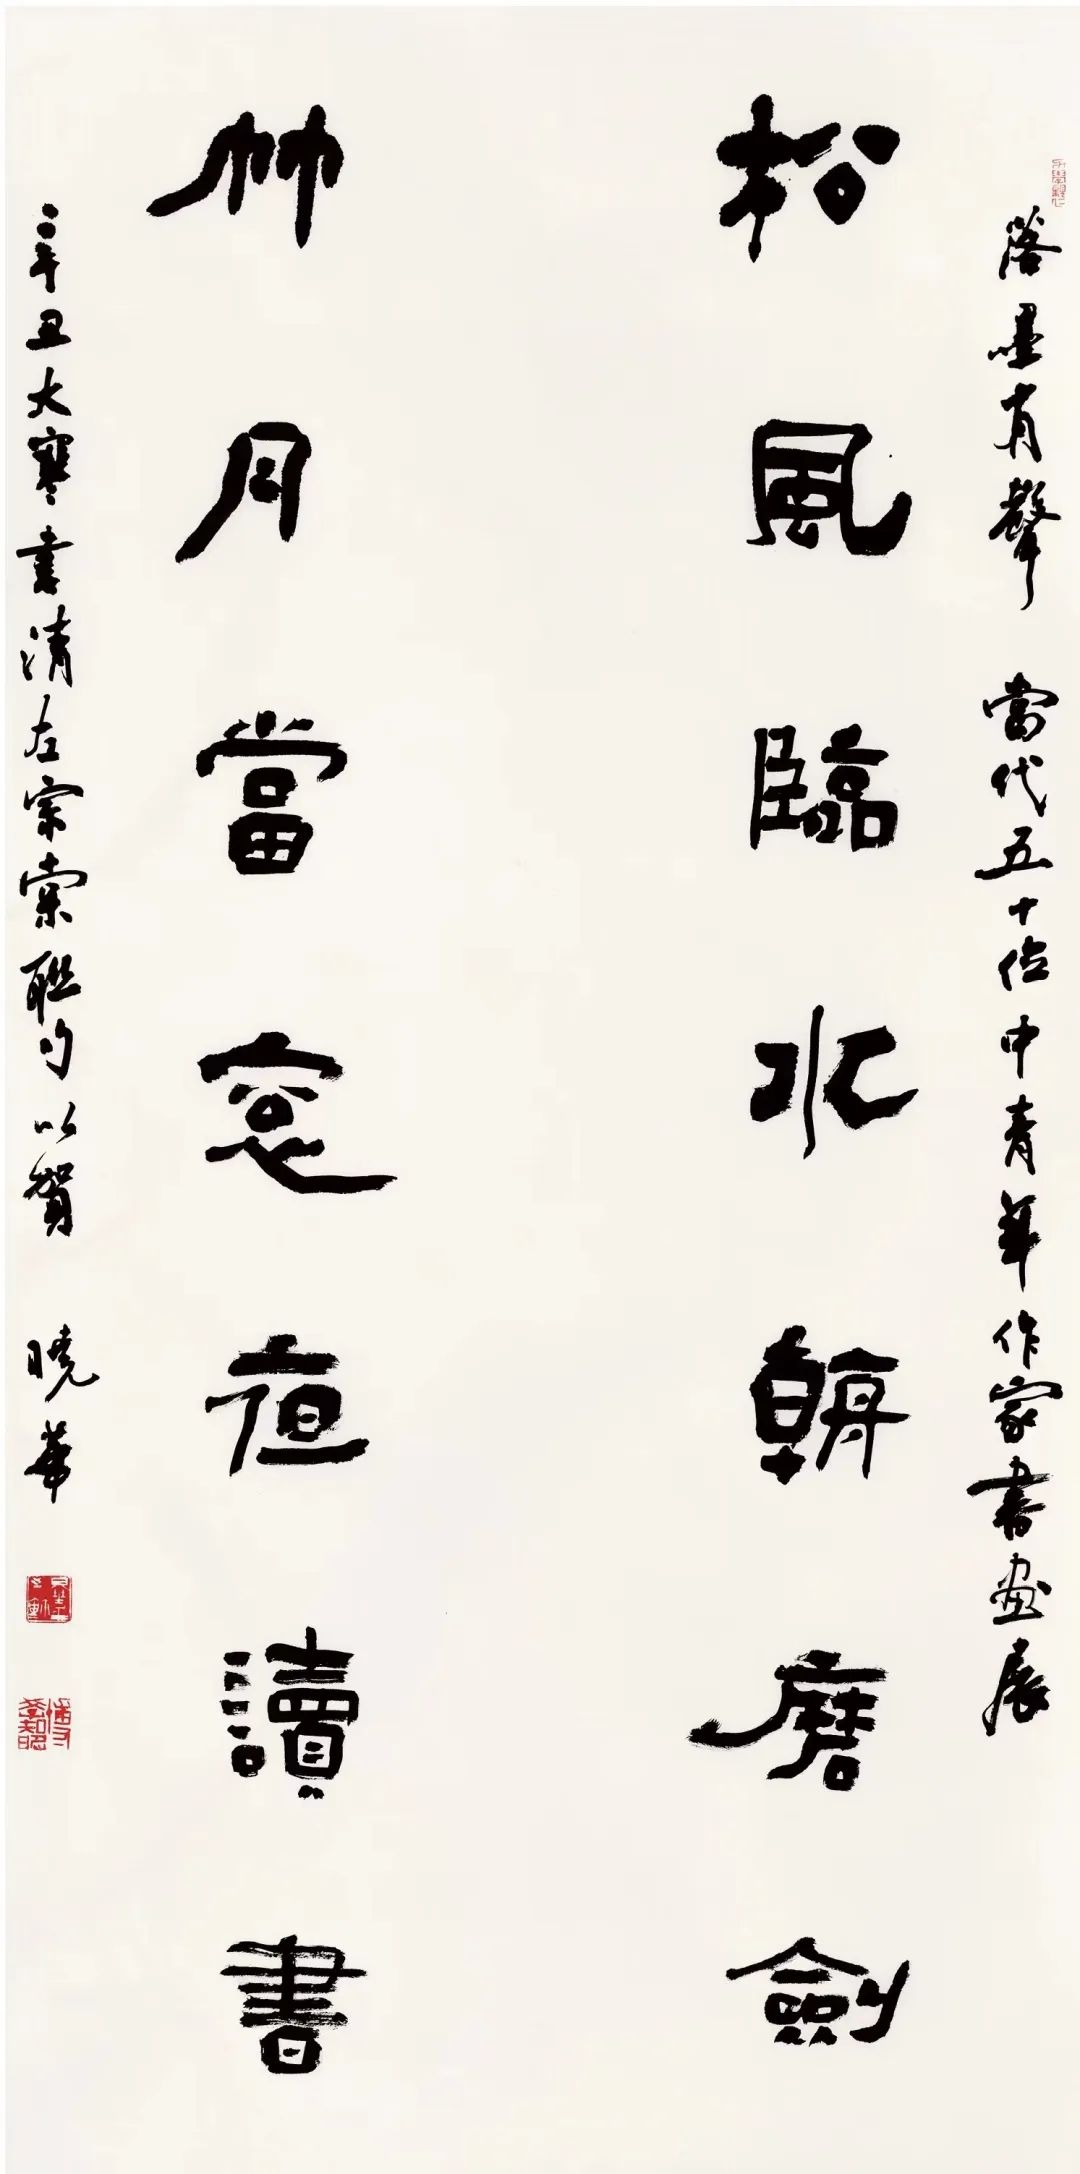 落墨有聲 當代五十位中青年作家書畫展
松風臨水朝磨劍
竹月當窻夜讀書
辛丑大寒書清左宗棠聯句以賀 曉華